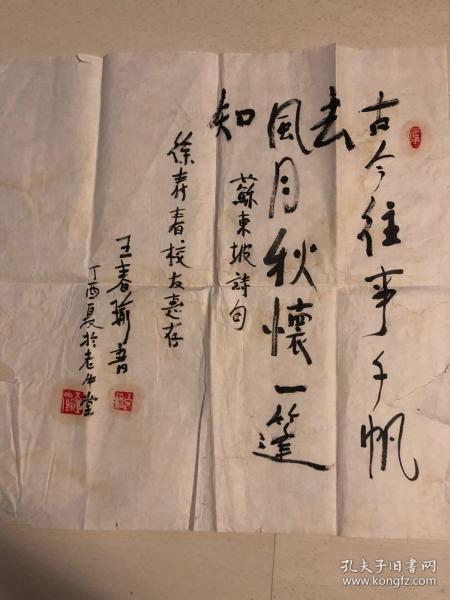 古今往事千帆
去
風月秋懷一篷
知
蘇東坡詩句
徐寿春校友惠存
王春瑜書
丁酉夏於老牛堂
孔夫子旧书网
www.kongfz.com